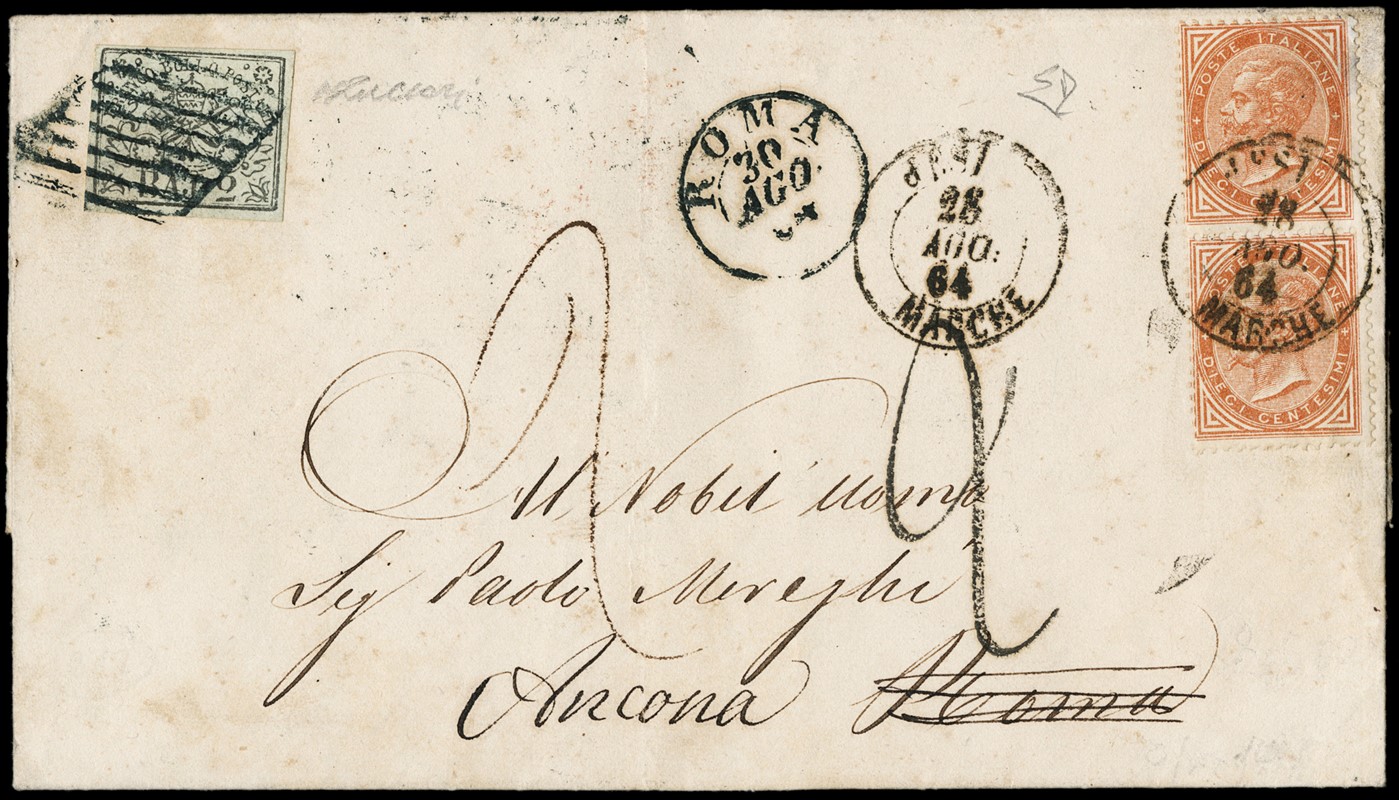 BOLLO POST
BAJ. 2
ROMA
30
AGO.
64
JESI
28
AGO.
64
MARCHE
POSTE ITALIANE
DIECI CENTESIMI
JESI
28
AGO.
64
MARCHE
POSTE ITALIANE
DIECI CENTESIMI
2
2
Al Nobil Uomo
Sig Paolo Mereghi
Ancona Roma